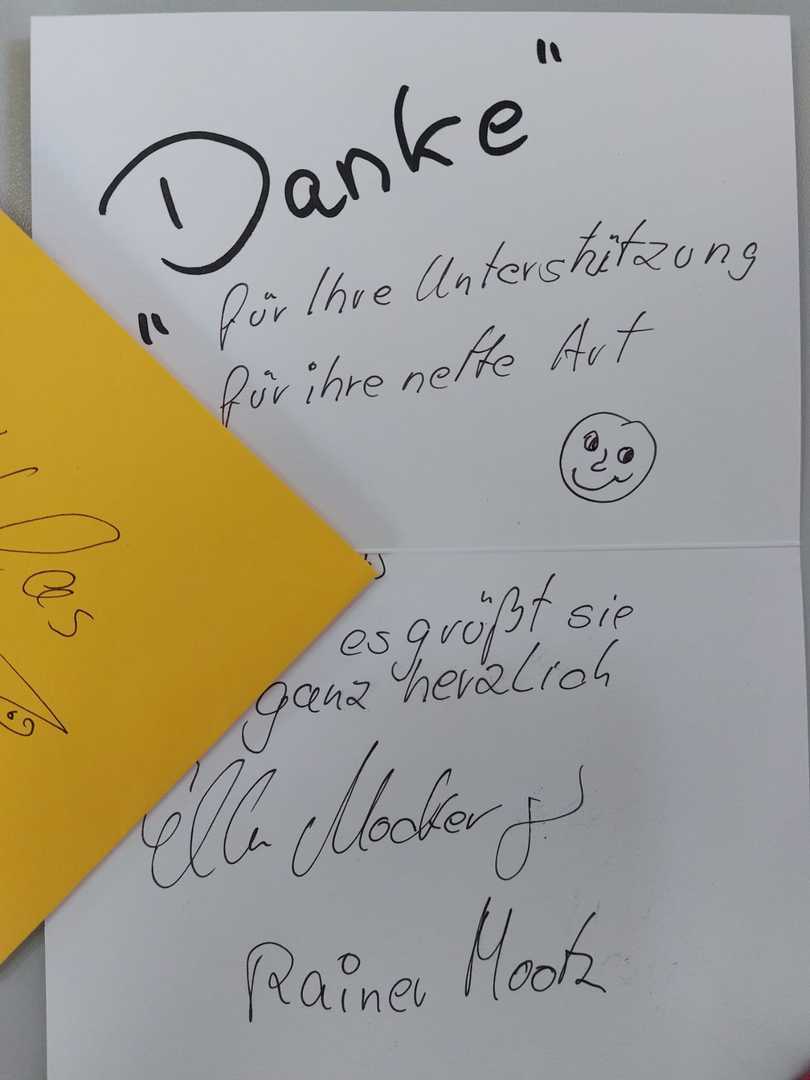 Danke"
" für Ihre Unterstützung
für ihre nette Art
es grüßt sie
ganz herzlich
Ella Mocker
Rainer Mootz
as